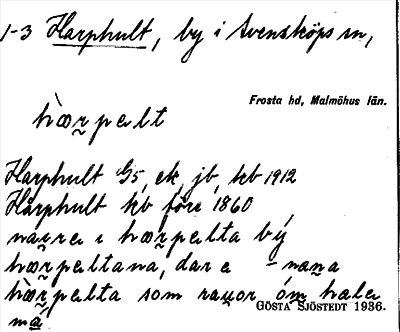 1-3 Harphult, by i Svensköps sn,
Frosta hd, Malmöhus län.
hærpelt
Harphult G5, ek, jb, kb 1912
Hårphult kb före 1860
i hærpelta by
hærpeltana, dar e
hærpelta som om hala
GÖSTA SJÖSTEDT 1936.